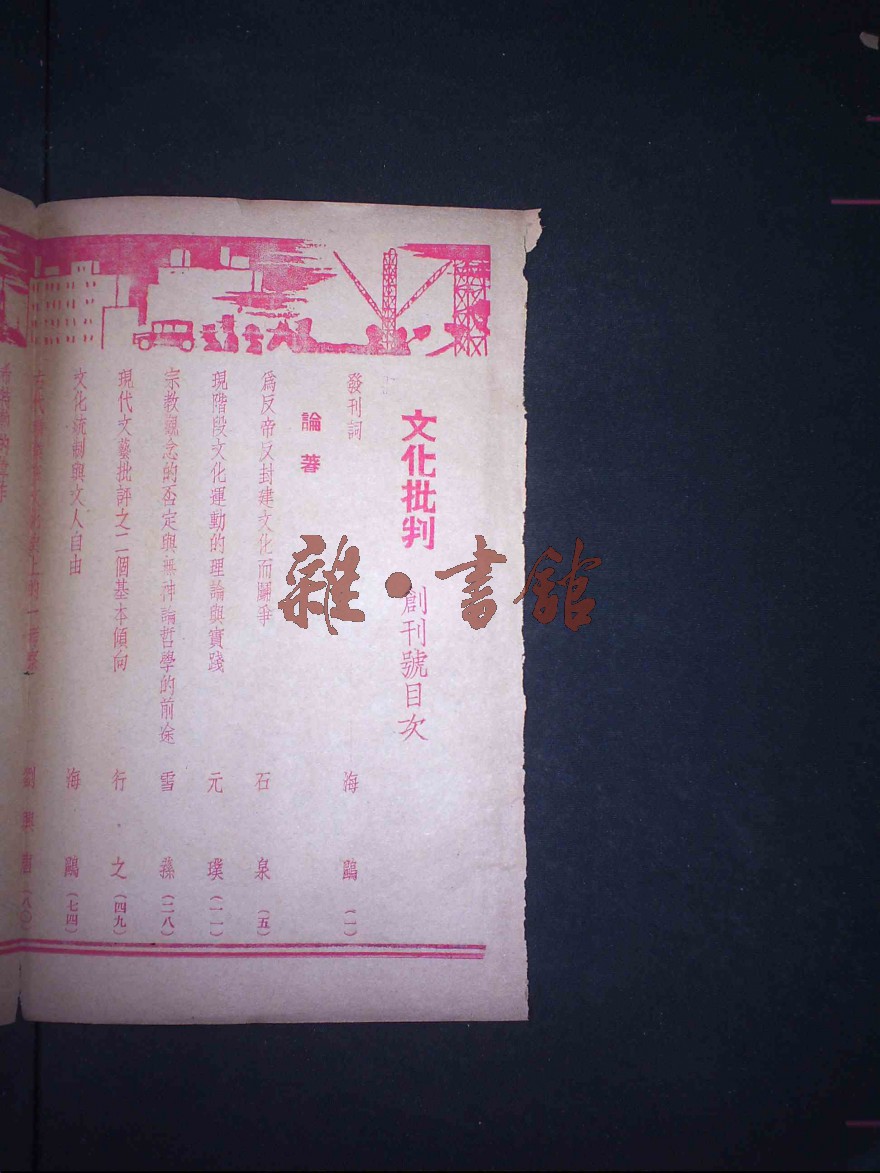 文化批判 創刊號目次
發刊詞 海鷗 (一)
論著
為反帝反封建文化而鬭爭 石泉 (五)
現階段文化運動的理論與實踐 元璞 (一一)
宗教觀念的否定與無神論哲學的前途 雪蓀 (二八)
現代文藝批評之二個基本傾向 行之 (四九)
文化統制與文人自由 海鷗 (七四)
劉興唐 (八〇)
雜·書館